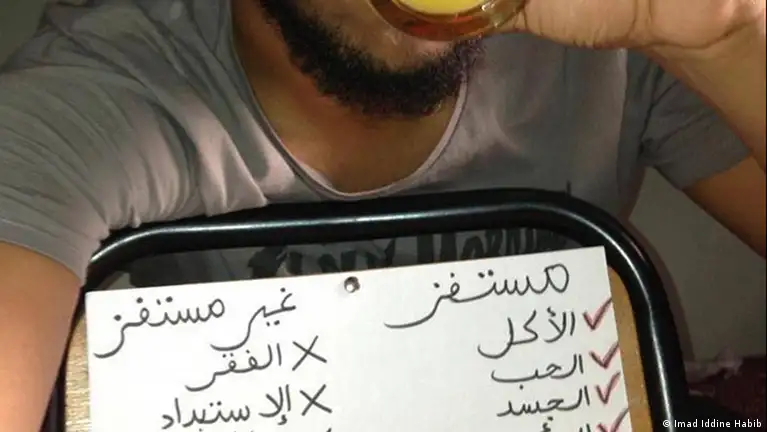 مستفز
✓ الأكل
✓ الحب
✓ الجسد
غير مستفز
× الفقر
× الإستبداد
© Imad Iddine Habib